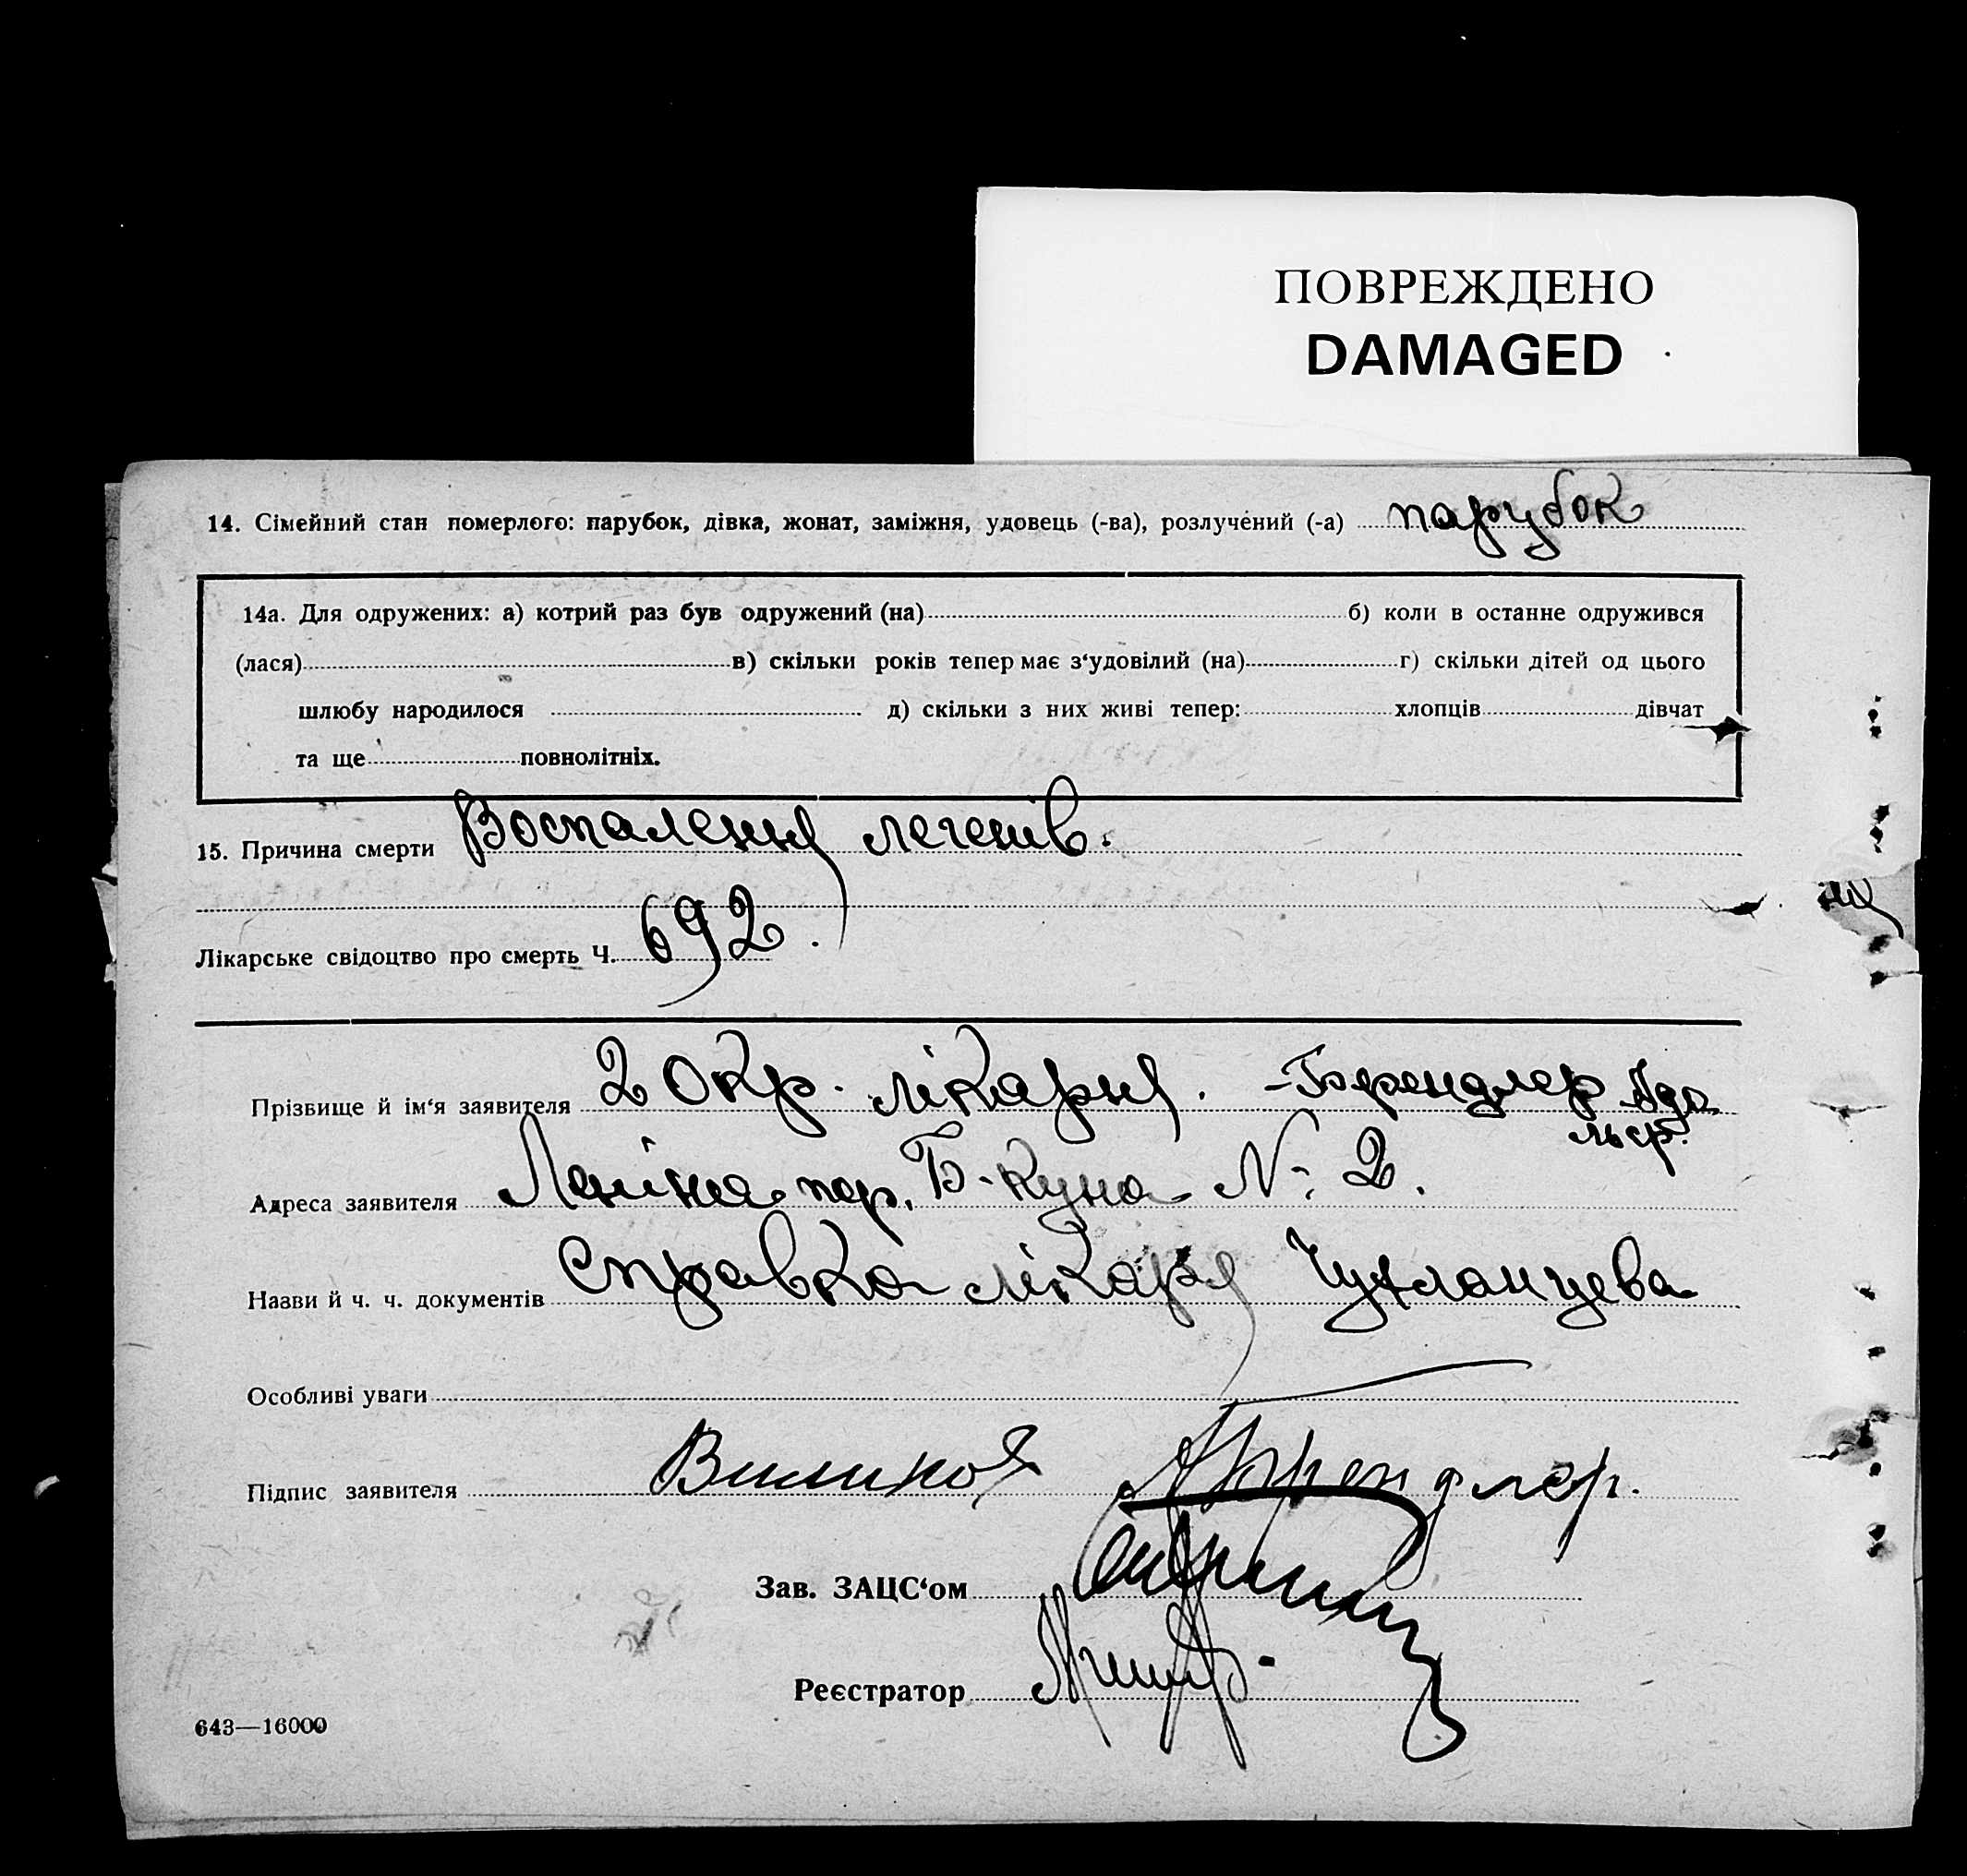 ПОВРЕЖДЕНО
DAMAGED
14. Сімейний стан померлого: парубок, дівка, жонат, заміжня, удовець (-ва), розлучений (-а) парубок
14а. Для одружених: а) котрий раз був одружений (на) б) коли в останне одружився
(лася) в) скільки років тепер має з‘удовілий (на) г) скільки дітей од цього
шлюбу народилося д) скільки з них живі тепер: хлопців дівчат
та ще повнолітніх.
15. Причина смерти Воспалення легенів.
Лікарське свідоцтво про смерть Ч. 692.
Прізвище й ім‘я заявителя 2 Окр. лікарня. - Брендлер Адо
льф.
Адреса заявителя Леніна пер. Б-куна № 2.
Назви й ч. ч. документів Справка лікаря
Особливі уваги
Підпис заявителя Брендлер.
Зав. ЗАЦС‘ом
Реєстратор
643—16000